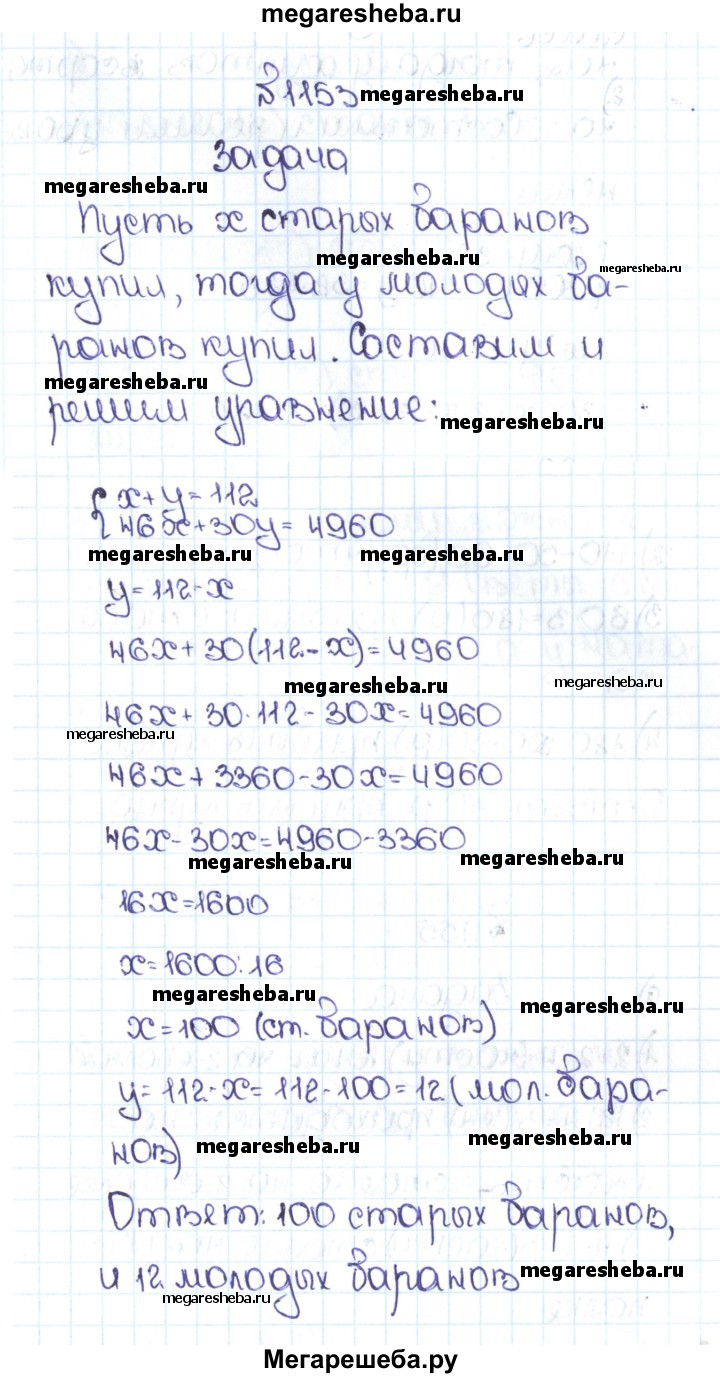 megaresheba.ru
№1153 megaresheba.ru
Задача
megaresheba.ru
Пусть x старых баранов
megaresheba.ru megaresheba.ru
купил, тогда y молодых ба-
ранов купил. Составим и
megaresheba.ru
решим уравнение:
megaresheba.ru
{ x+y=112
46x+30y=4960
megaresheba.ru megaresheba.ru
y=112-x
46x+30(112-x)=4960
megaresheba.ru megaresheba.ru
46x+30·112-30x=4960
megaresheba.ru
46x+3360-30x=4960
46x-30x=4960-3360
megaresheba.ru megaresheba.ru
16x=1600
x=1600:16
megaresheba.ru megaresheba.ru
x=100 (ст. баранов)
y=112-x=112-100=12 (мол. бара-
нов) megaresheba.ru megaresheba.ru
Ответ: 100 старых баранов,
и 12 молодых баранов megaresheba.ru
megaresheba.ru
Мегарешеба.ру